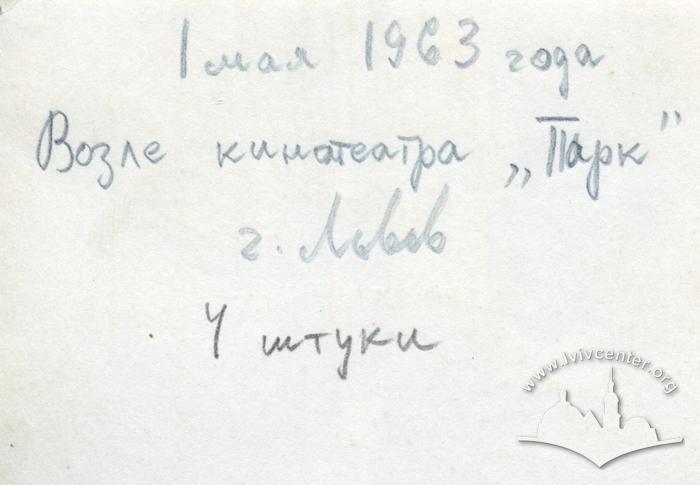 1 мая 1963 года
Возле кинотеатра „Парк”
г. Львов
4 штуки
www.lvivcenter.org